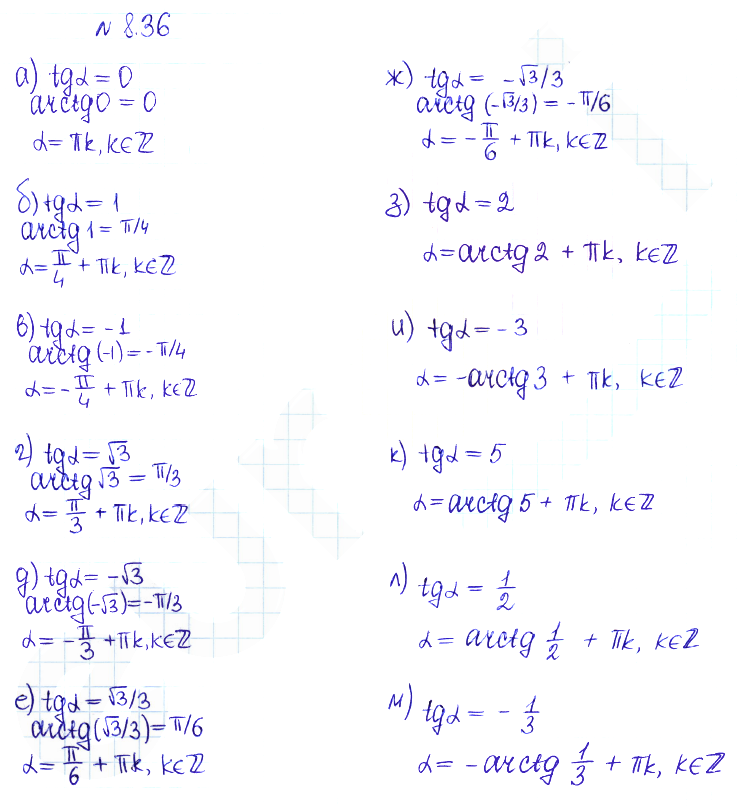 N 8.36
а) tgα = 0
arctg 0 = 0
α = πk, k∈ℤ
б) tgα = 1
arctg 1 = π/4
α = π/4 + πk, k∈ℤ
в) tgα = -1
arctg (-1) = -π/4
α = -π/4 + πk, k∈ℤ
г) tgα = √3
arctg √3 = π/3
α = π/3 + πk, k∈ℤ
д) tgα = -√3
arctg (-√3) = -π/3
α = -π/3 + πk, k∈ℤ
е) tgα = √3/3
arctg (√3/3) = π/6
α = π/6 + πk, k∈ℤ
ж) tgα = -√3/3
arctg (-√3/3) = -π/6
α = -π/6 + πk, k∈ℤ
з) tgα = 2
α = arctg 2 + πk, k∈ℤ
и) tgα = -3
α = -arctg 3 + πk, k∈ℤ
к) tgα = 5
α = arctg 5 + πk, k∈ℤ
л) tgα = 1/2
α = arctg 1/2 + πk, k∈ℤ
м) tgα = - 1/3
α = -arctg 1/3 + πk, k∈ℤ